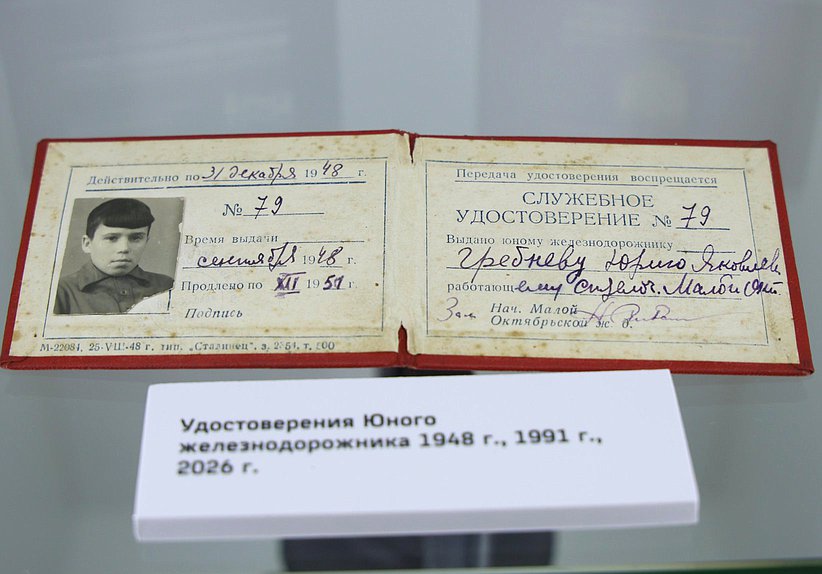 Действительно по 31 декабря 1948 г.
№ 79
Время выдачи
сентября 1948 г.
Продлено по XII 1951 г.
Подпись
М-22084, 25-VIII-48 г. тип. „Сталинец", з. т. 500
Передача удостоверения воспрещается
СЛУЖЕБНОЕ
УДОСТОВЕРЕНИЕ № 79
Выдано юному железнодорожнику
Гребневу Юрию Яковлеви
работающ ему Малой Окт
Зам Нач. Малой
Октябрьской ж. д.
Удостоверения Юного
железнодорожника 1948 г., 1991 г.,
2026 г.